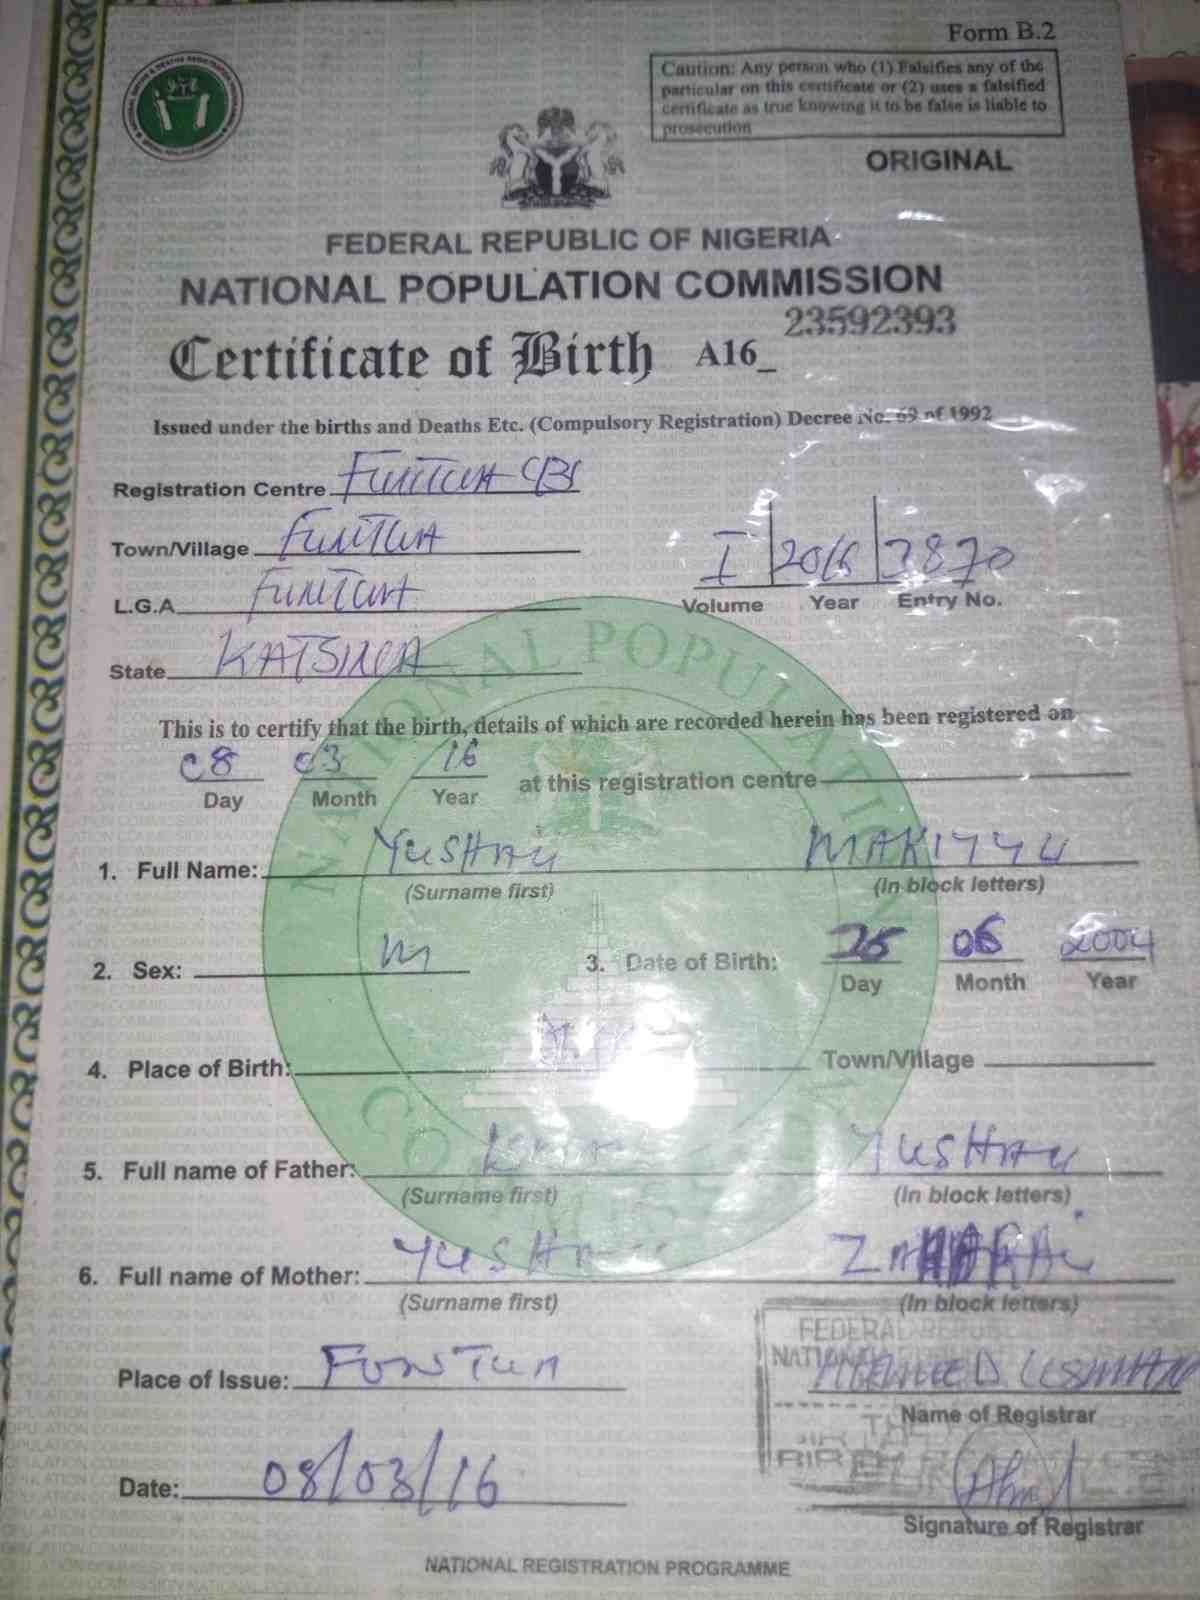 Form B.2
Caution: Any person who (1) Falsifies any of the
particular on this certificate or (2) uses a falsified
certificate as true knowing it to be false is liable to
prosecution
ORIGINAL
FEDERAL REPUBLIC OF NIGERIA
NATIONAL POPULATION COMMISSION
23592393
Certificate of Birth A16_
Issued under the births and Deaths Etc. (Compulsory Registration) Decree No. 69 of 1992
Registration Centre FUNTUA
Town/Village FUNTUA
L.G.A FUNTUA
I 2016 3870
Volume Year Entry No.
State KATSINA
This is to certify that the birth, details of which are recorded herein has been registered on
08 03 16 at this registration centre
Day Month Year
1. Full Name: YUSHAU MAKIYYU
(Surname first) (In block letters)
2. Sex: M 3. Date of Birth: 06 2004
Day Month Year
4. Place of Birth: Town/Village
5. Full name of Father: YUSHAU
(Surname first) (In block letters)
6. Full name of Mother: YUSHAU
(Surname first) (In block letters)
Place of Issue: FUNTUA
USMAN
Name of Registrar
Date: 08/03/16
Signature of Registrar
NATIONAL REGISTRATION PROGRAMME